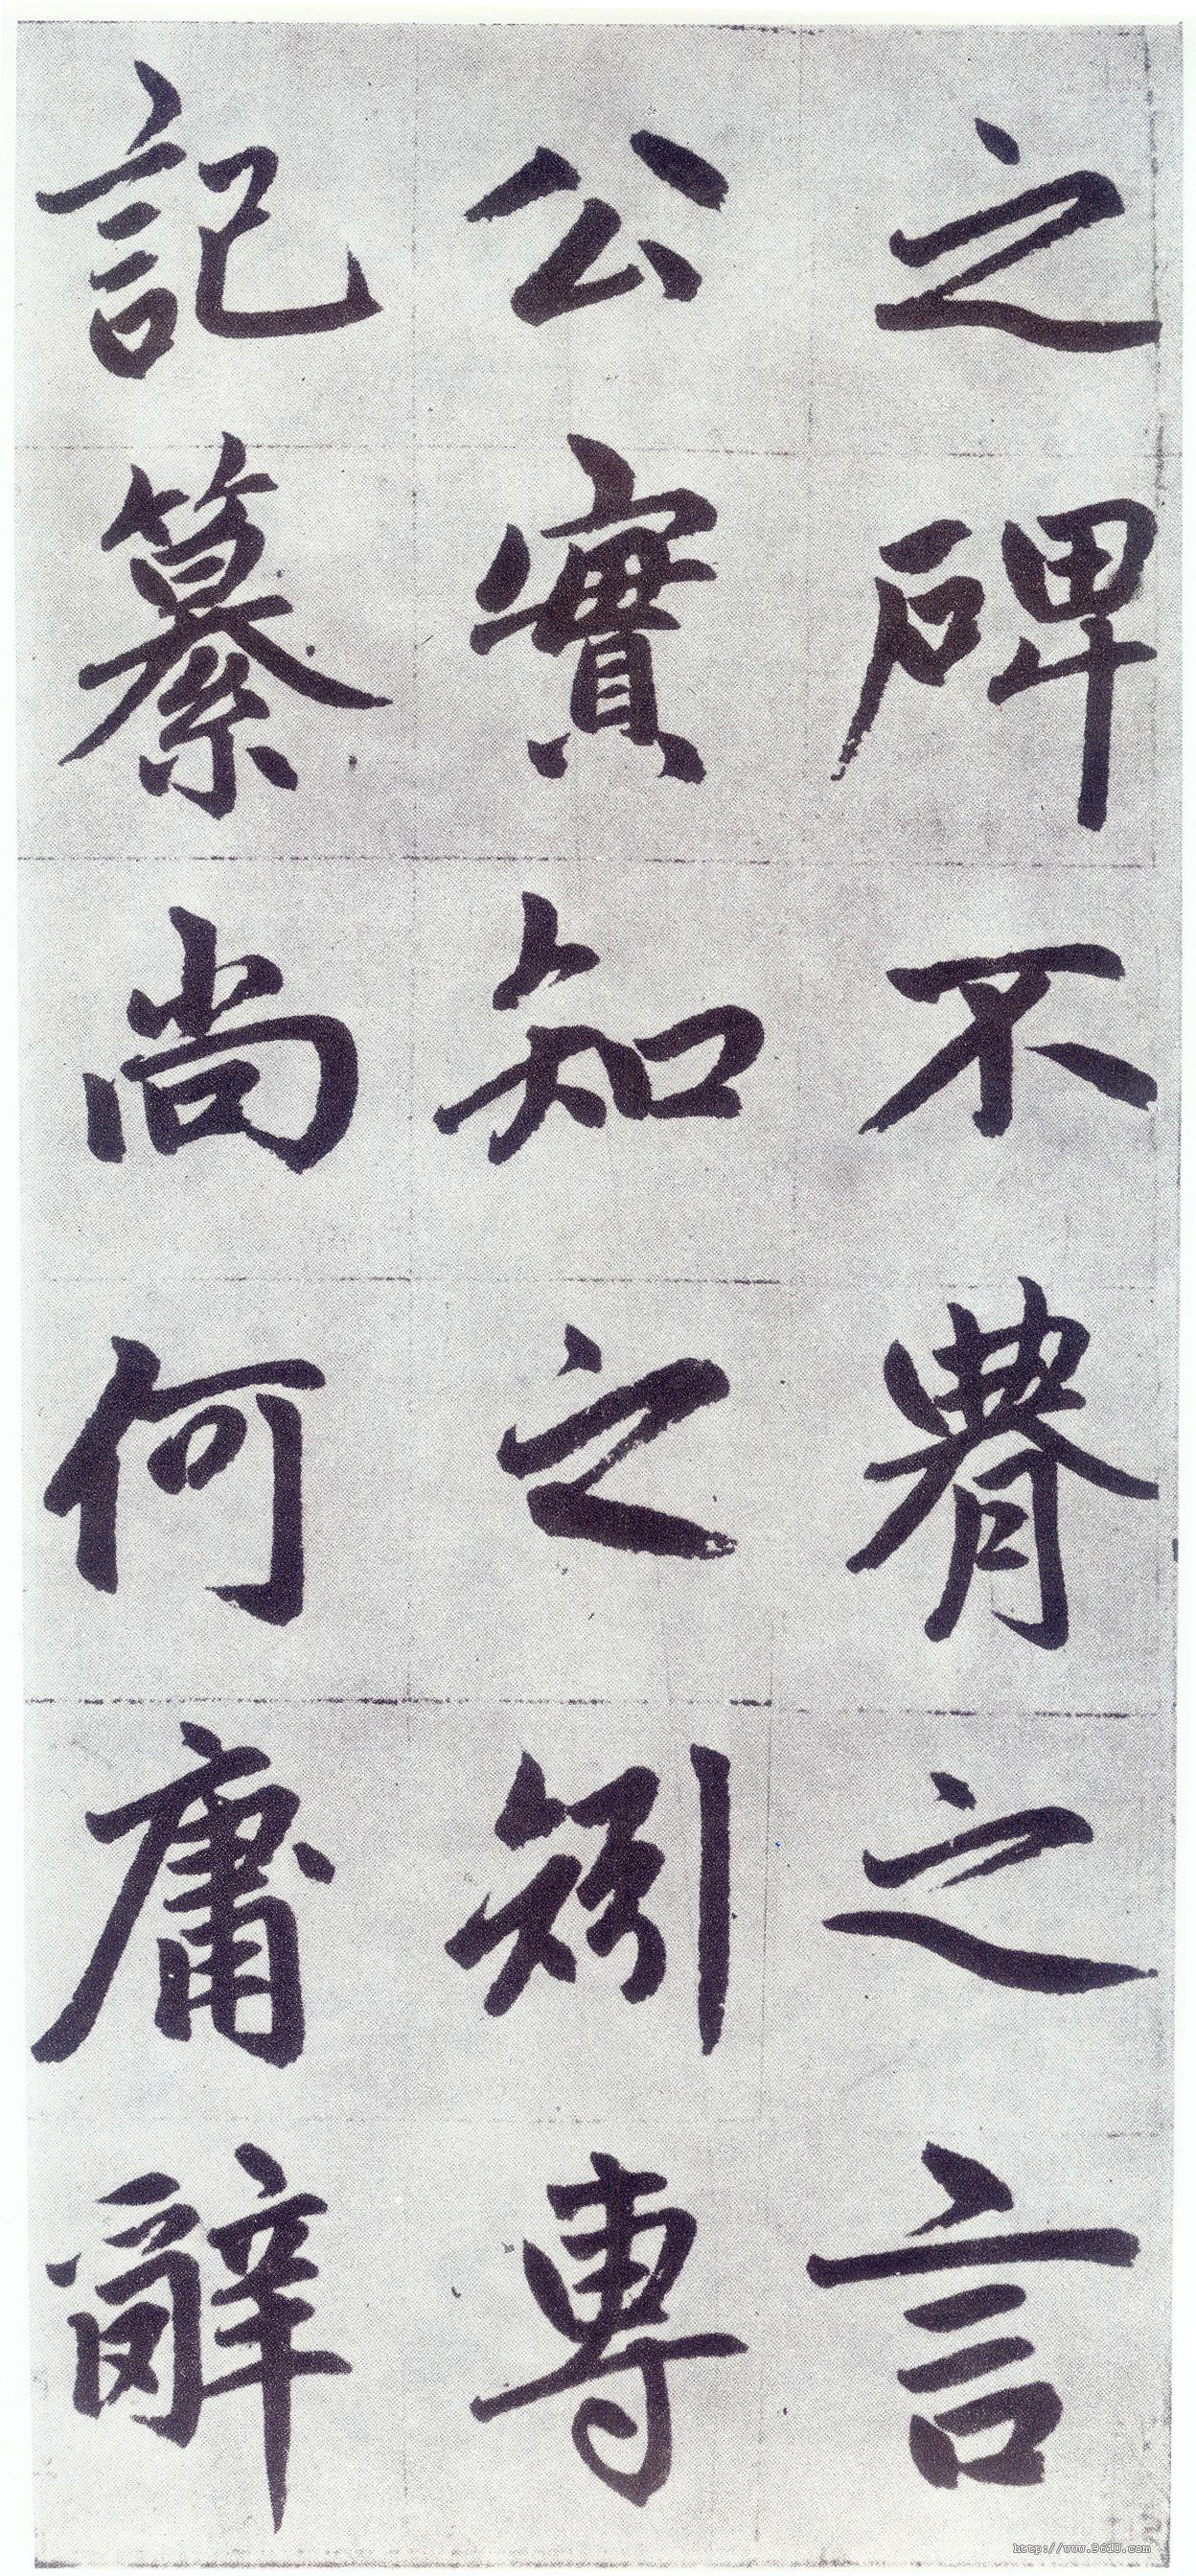 之碑不朞之言
公實知之矧專
記纂尚何庸辭
http://www.9610.com